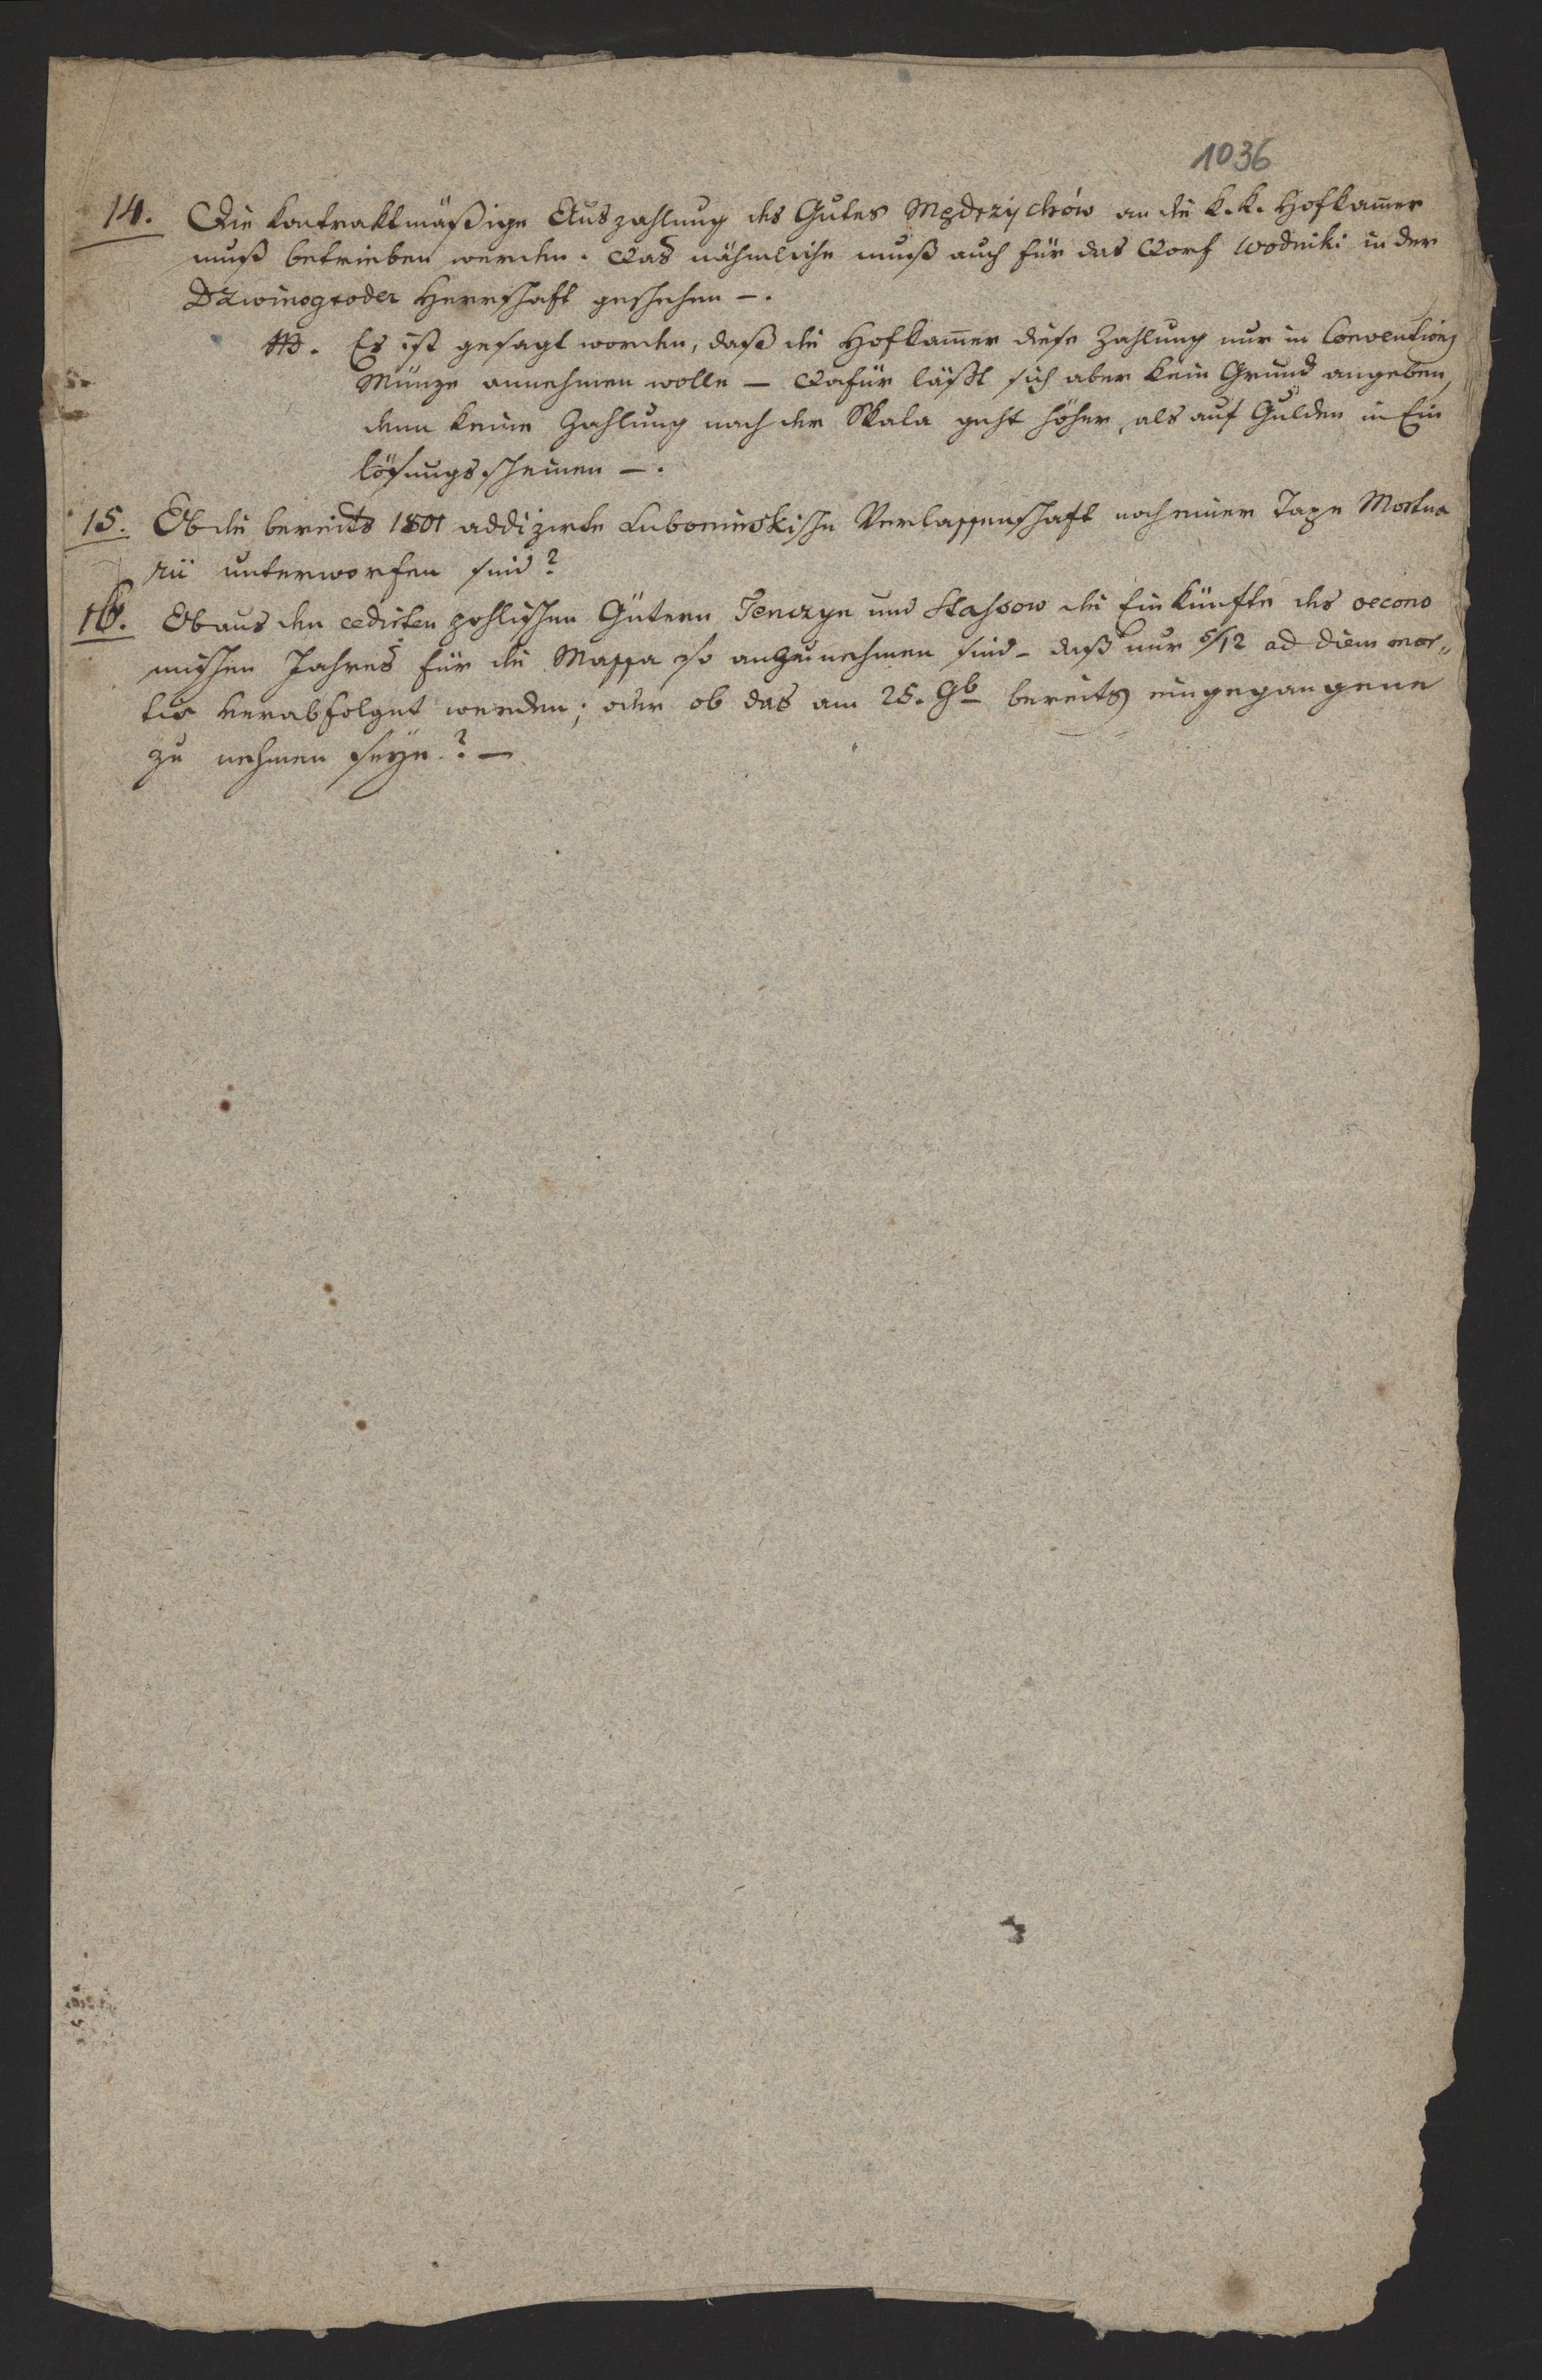 1036
14. Die kontraktmäßige Auszahlung des Gutes Mędrzychów an die k. k. Hofkam̅er
muß betrieben werden. Das nähmliche muß auch für das Dorf Wodniki in der
Dzwinogroder Herrschaft geschehen —.
NB. Es ist gesagt worden, daß die Hofkam̅er diese Zahlung nur in Conventions
Münze annehmen wolle — Dafür läßt sich aber kein Grund angeben,
denn keine Zahlung nach der Skala geht höher, als auf Gulden in Ein
lösungsscheinen —.
15. Ob die bereits 1801 addizirte Lubomirskische Verlassenschaft noch einer Taxe Mortua
rii unterworfen sind?
16. Ob aus den cedirten pohlischen Gütern Tenczyn und Staszow die Einkünfte des oecono
mischen Jahres für die Massa so anzunehmen sind – daß nur 5/12 ad diem mor„
tis verabfolgt werden; oder ob das am 25. 9b bereits eingegangene
zu nehmen seye? —